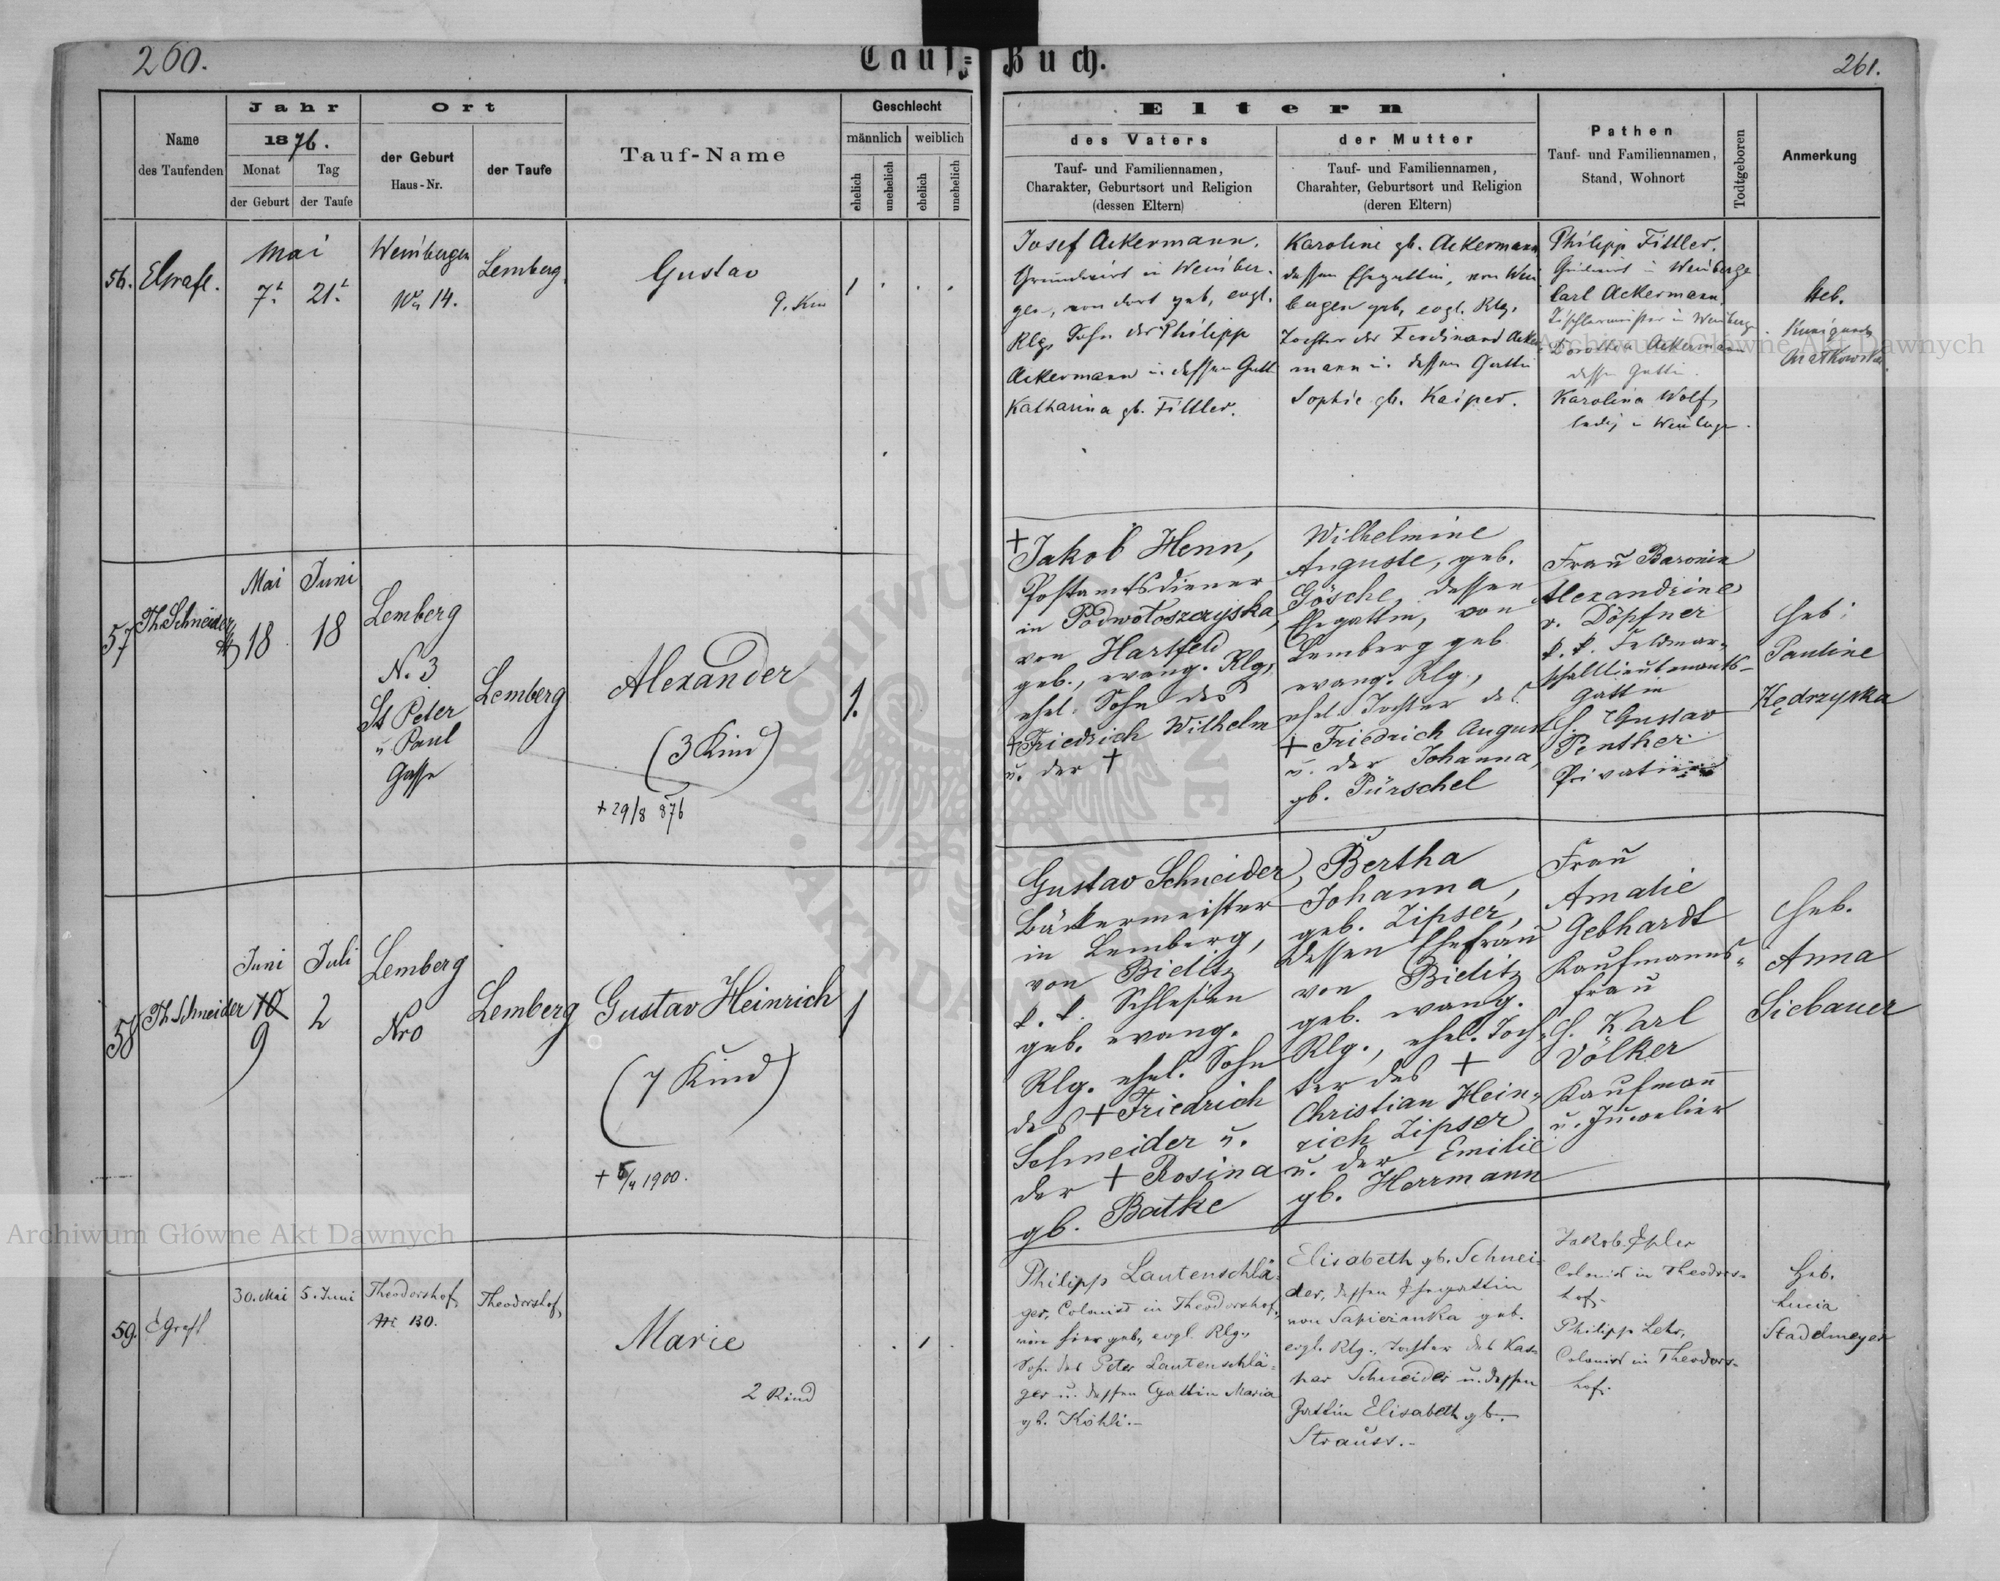 260.
Tauf=Buch.
261.
Name
des Taufenden
Jahr
1876.
Monat
Tag
der Geburt
der Taufe
Ort
der Geburt
Haus-Nr.
der Taufe
Tauf-Name
Geschlecht
männlich
weiblich
ehelich
unehelich
ehelich
unehelich
Eltern
des Vaters
Tauf- und Familiennamen,
Charakter, Geburtsort und Religion
(dessen Eltern)
der Mutter
Tauf- und Familiennamen,
Charahter, Geburtsort und Religion
(deren Eltern)
Pathen
Tauf- und Familiennamen,
Stand, Wohnort
Todtgeboren
Anmerkung
56.
Mai
7t
21t
Weinbergen
No 14.
Lemberg.
Gustav
9. Kin
1
Josef Ackermann,
Grundwirt in Weinber-
gen, von dort geb., evgl.
Rlg. Sohn der Philipp
Ackermann u. dessen Gatt
Katharina gb. Fittler.
Karoline gb. Ackermann
dessen Ehegattin, von Wein
bergen geb. evgl. Rlg.
Tochter des Ferdinand Acker
mann u. dessen Gattin
Sophie gb. Kaiper.
Philipp Fittler,
Grundwirt in Weinberge
Carl Ackermann,
Tischlermeister in Weinberge
Dorothea Ackermann
dessen Gattin.
Karolina Wolf,
ledig in Weinberge.
Heb.
Kunigunda
57
Th. Schneider
Mai
18
Juni
18
Lemberg
N. 3
St Peter
u Paul
Gasse
Lemberg
Alexander
(3 Kind)
+ 29/8 876
1.
+ Jakob Henn,
Postamtsdiener
in Podwołoszczyska,
von Hartfeld
geb., evang. Rlg.,
ehel. Sohn des
+ Friedrich Wilhelm
u. der +
Wilhelmine
Auguste, geb.
Gösche, dessen
Ehegattin, von
Lemberg geb.
evang. Rlg.,
ehel. Tochter des
+ Friedrich August
u. der Johanna,
gb. Pürschel
Frau Baronin
Alexandrine
v. Döpfner
k. k. Feldmar-
schallieutenants-
gattin
H. Gustav
Penther
Heb:
Pauline
Kędrzyska
58
Th. Schneider
Juni
10
9
Juli
2
Lemberg
Nro
Lemberg
Gustav Heinrich
(7 Kind)
+ 5/4 1900.
1
Gustav Schneider,
Bäckermeister
in Lemberg,
von Bielitz
k. k. Schlesien
geb. evang.
Rlg. ehel. Sohn
des + Friedrich
Schneider u.
der + Rosina
gb. Batke
Bertha
Johanna,
geb. Zipser,
dessen Ehefrau
von Bielitz
geb. evang.
Rlg., ehel. Toch-
ter des +
Christian Hein-
rich Zipser
u. der Emilie
gb. Herrmann
Frau
Amalie
Gebhardt
Kaufmanns-
frau
H. Karl
Völker
Kaufmann
u. Juwelier
Heb.
Anna
Siebauer
59.
E Graft
30. Mai
5. Juni
Theodorshof,
Nr 130.
Theodorshof,
Marie
2 Kind
1
Philipp Lautenschlä-
ger, Colonist in Theodorshof,
von hier geb., evgl. Rlg.,
Sohn des Peter Lautenschlä-
ger u. dessen Gattin Maria
gb. Köhli.-
Elisabeth gb. Schnei-
der, dessen Ehegattin
von Sapieżanka geb.
evgl. Rlg., Tochter des Kas-
par Schneider u. dessen
Gattin Elisabeth gb.
Strauss.-
Jakob Epler
Colonist in Theodors-
hof.
Philipp Lehr,
Colonist in Theodors-
hof.
Heb.
Lucia
Stadelmeyer
Archiwum Główne Akt Dawnych
Archiwum Główne Akt Dawnych
ARCHIWUM GŁÓWNE AKT DAWNYCH